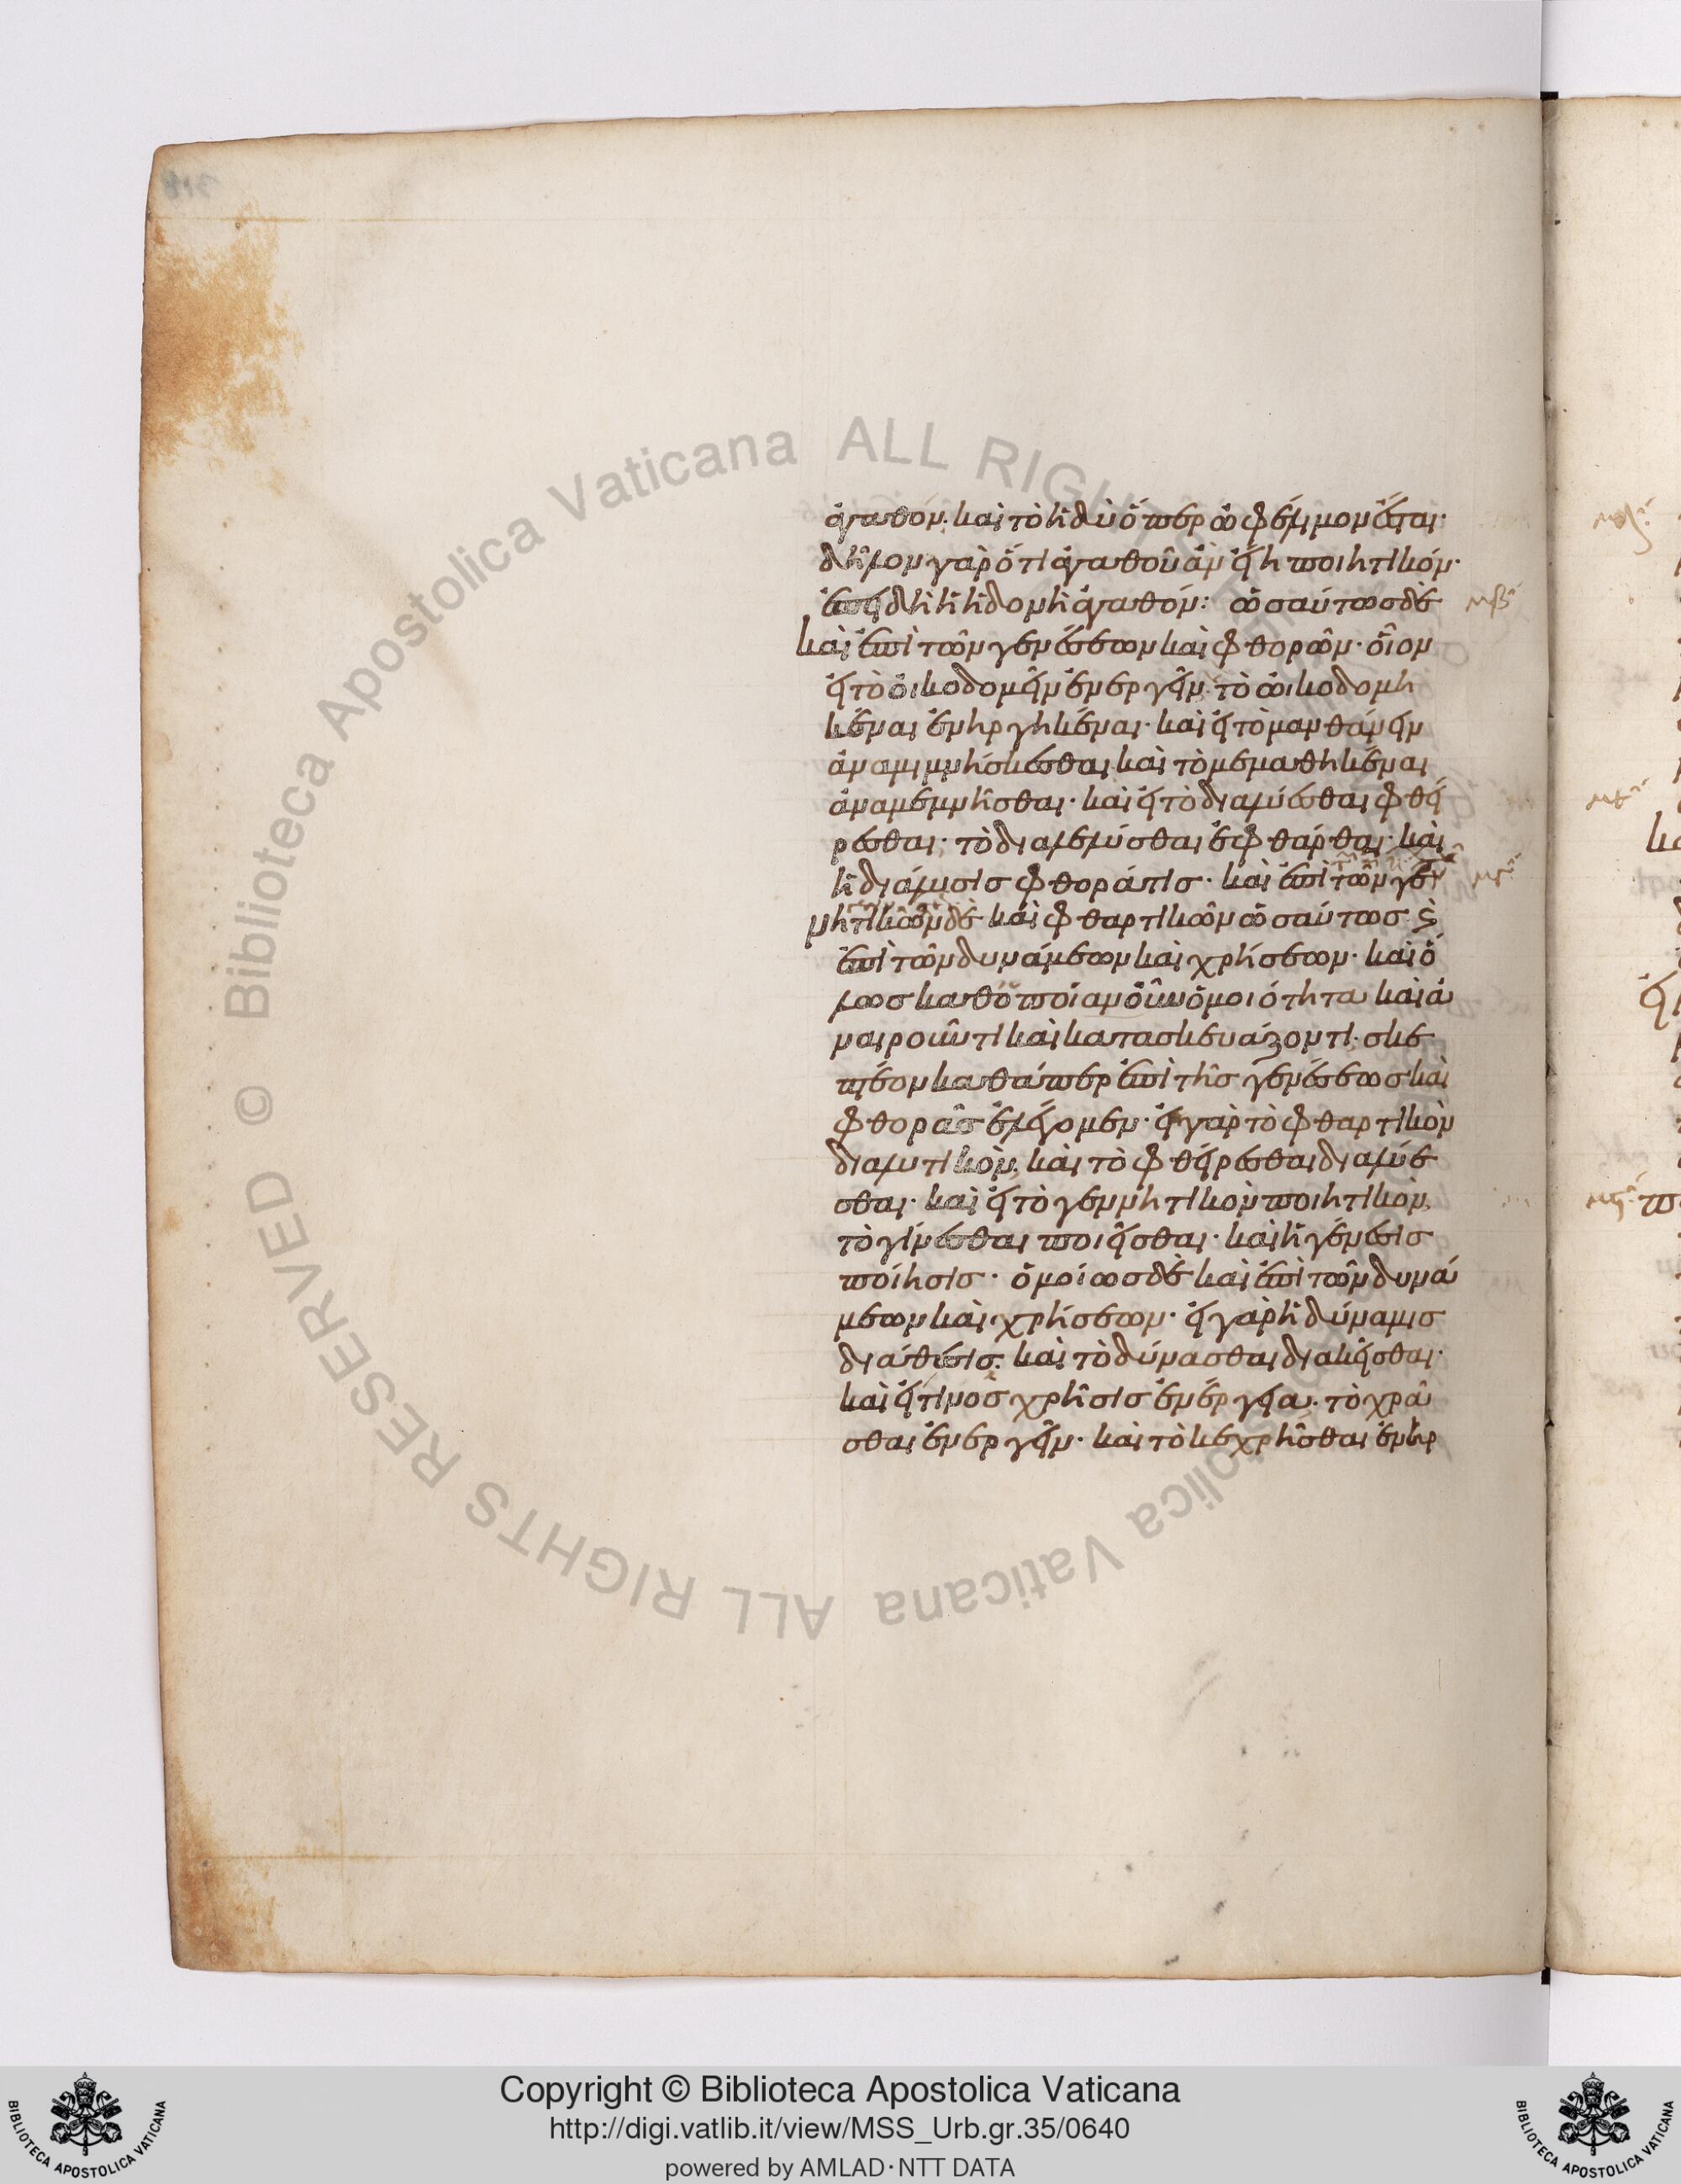 ἀγαθόν· καὶ τὸ ἡδὺ ὅπερ ὠφέλιμον ἔσται·
δῆλον γὰρ ὅτι ἀγαθοῦ ἂν εἴη ποιητικόν·
ἐπεὶ δὴ ἡ ἡδονὴ ἀγαθόν: ὡσαύτως δὲ
καὶ ἐπὶ τῶν γενέσεων καὶ φθορῶν· οἷον
εἰ τὸ οἰκοδομεῖν ἐνεργεῖν· τὸ ὠικοδομη
κέναι ἐνηργηκέναι· καὶ εἰ τὸ μανθάνειν
ἀναμιμνήσκεσθαι καὶ τὸ μεμαθηκέναι
ἀναμεμνῆσθαι· καὶ εἰ τὸ διαλύεσθαι φθεί
ρεσθαι· τὸ διαλελύσθαι ἐφθάρθαι· καὶ
ἡ διάλυσις φθορά τις· καὶ ἐπὶ τῶν γεν
νητικῶν δὲ καὶ φθαρτικῶν ὡσαύτως· καὶ
ἐπὶ τῶν δυνάμεων καὶ χρήσεων· καὶ ὅ
λως καθ' ὁποίαν οὖν ὁμοιότητα καὶ ἀ
ναιροῦντι καὶ κατασκευάζοντι· σκε
πτέον καθάπερ ἐπὶ τῆς γενέσεως καὶ
φθορᾶς ἐλέγομεν· εἰ γὰρ τὸ φθαρτικὸν
διαλυτικὸν, καὶ τὸ φθείρεσθαι διαλύε
σθαι· καὶ εἰ τὸ γεννητικὸν ποιητικὸν,
τὸ γίνεσθαι ποιεῖσθαι· καὶ ἡ γένεσις
ποίησις· ὁμοίως δὲ καὶ ἐπὶ τῶν δυνά
μεων καὶ χρήσεων· εἰ γὰρ ἡ δύναμις
διάθεσις· καὶ τὸ δύνασθαι διακεῖσθαι·
καὶ εἴ τινος χρῆσις ἐνέργεια· τὸ χρῆ
σθαι ἐνεργεῖν· καὶ τὸ κεχρῆσθαι ἐνηρ
Copyright © Biblioteca Apostolica Vaticana
http://digi.vatlib.it/view/MSS_Urb.gr.35/0640
powered by AMLAD·NTT DATA
BIBLIOTECA APOSTOLICA VATICANA
BIBLIOTECA APOSTOLICA VATICANA
© Biblioteca Apostolica Vaticana ALL RIGHTS RESERVED